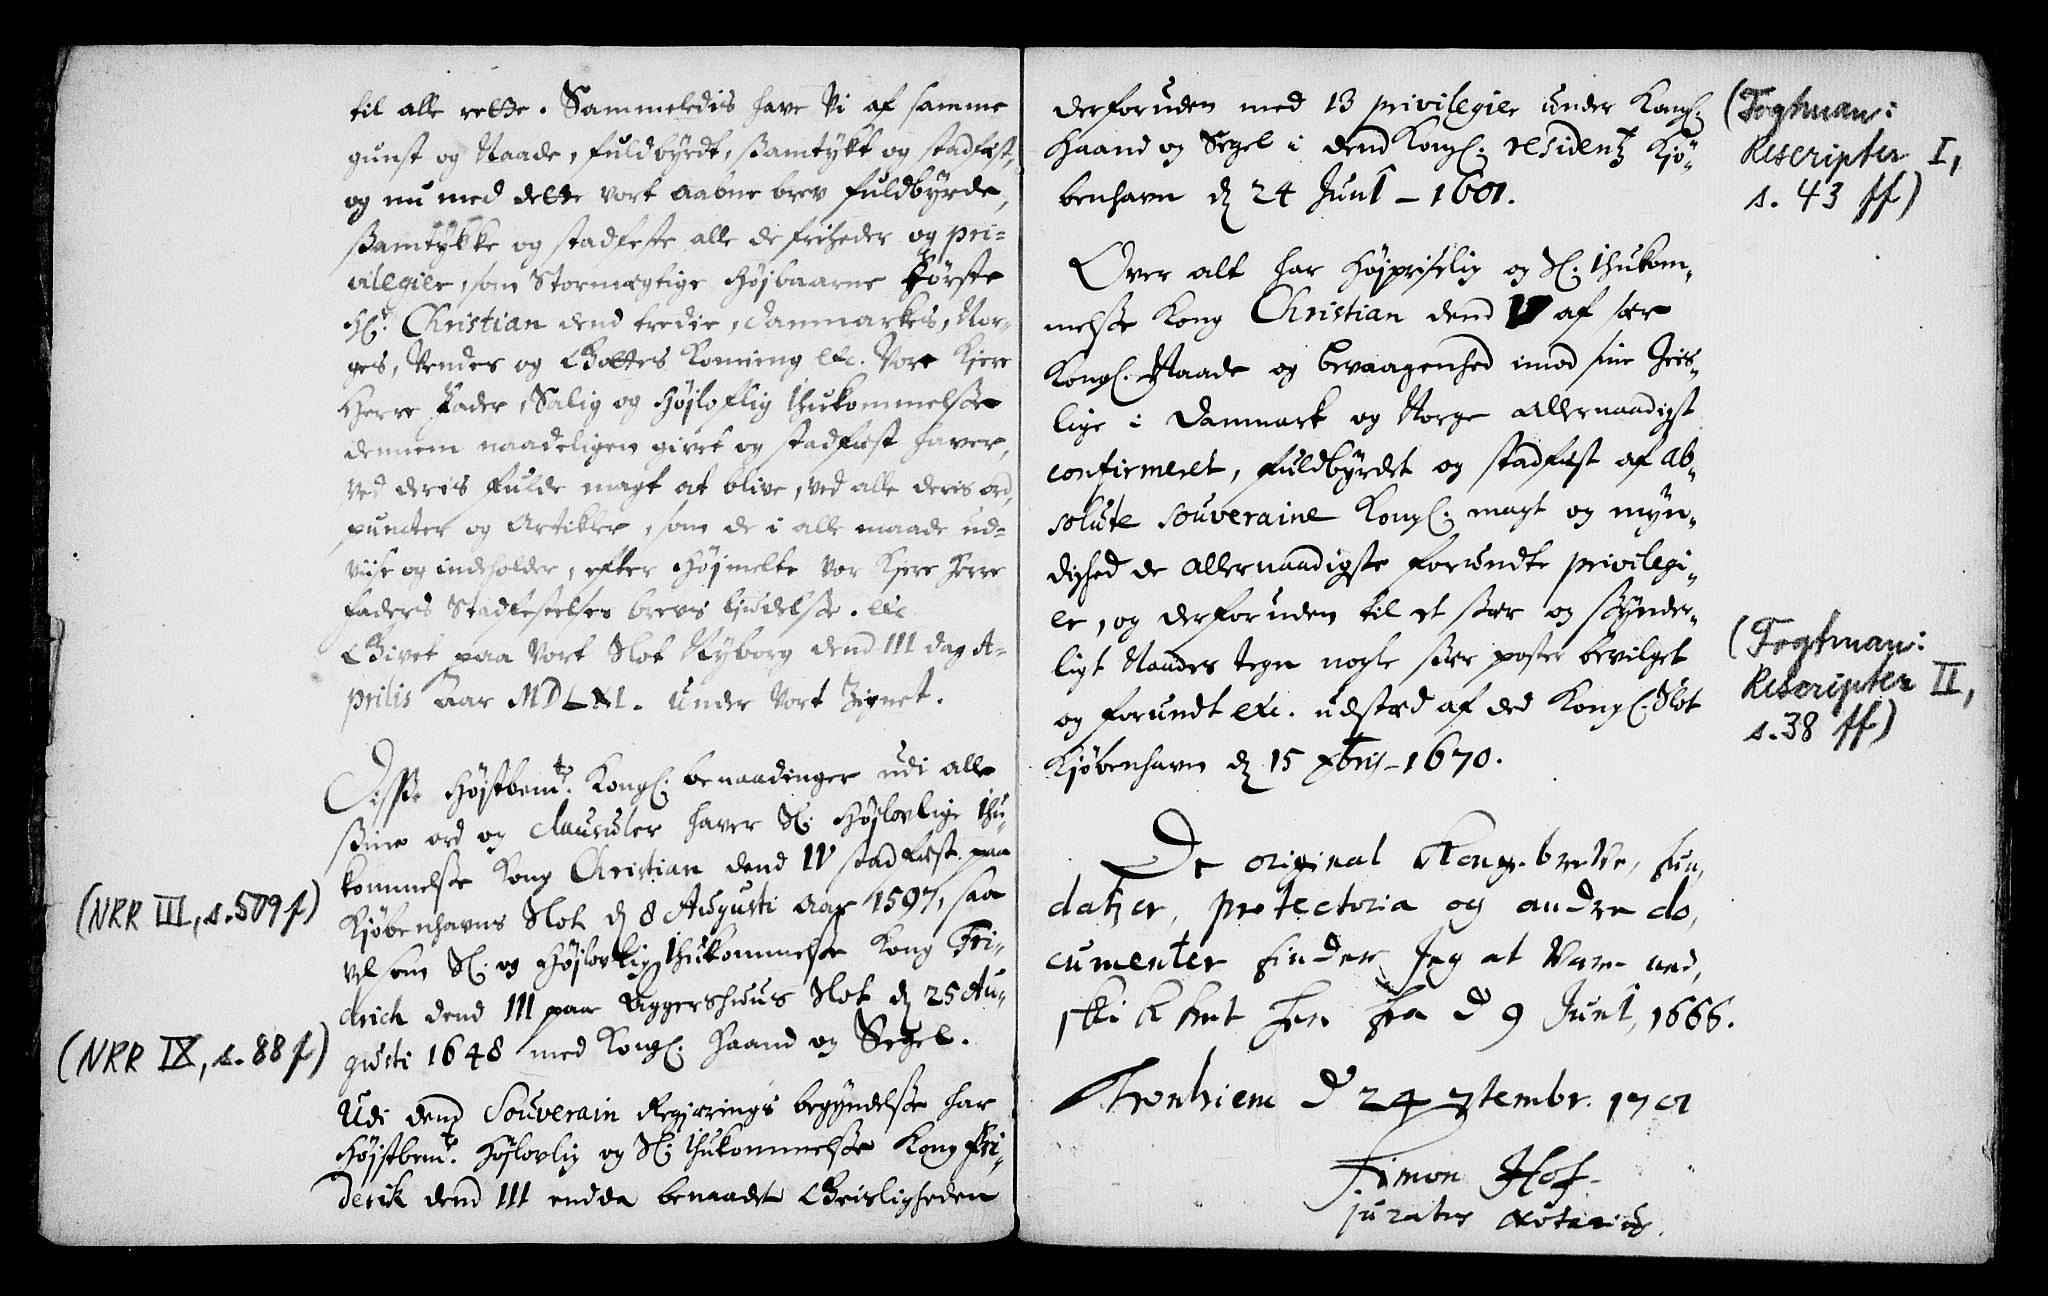 til alle rette. Sammeledis have Vi af samme
gunst og Naade, fuldbyrdt, samtykt og stadfæst,
og nu med dette vort aabne brev fuldbyrde,
samtykke og stadfeste alle de friheder og pri=
vilegier, som Stormægtige Højbaarne Förste
Hr. Christian dend tredie, Danmarkes, Nor=
ges, Vendes og Gottes Konning etc. Vor Kjere
Herre Fader, Salig og Højloflig Ihukommelse
dennem naadeligen givet og stadfæst haver,
ved deris fulde magt at blive, ved alle deris ord,
puncter og Artikler, som de i alle maade ud=
viise og indeholder, efter Højmelte Vor Kjere Herre
faders Stadfestelses brevs liudelse. etc
Givet paa Vort Slot Nyborg dend III dag A=
prilis Aar MDLXI. Under Vort Zignet.
Disse Højstbemte. Kongl. benaadinger udi alle
sine ord og Clausuler haver Sl. Højlovlige Ihu=
kommelse Kong Christian dend IV stadfæst paa
Kjøbenhavns Slot d. 8 Augusti Aar 1597, saa
(NRR III, s. 509 f)
vel som Sl. og Højlovlig Ihukommelse Kong Fri=
drich dend III paa Aggershuus Slot d. 25 Au=
gusti 1648 med Kongl. Haand og Segel.
(NRR IX, s. 88 f)
Udi dend Souverain Regjærings begyndelse har
Højstbemte. Højlovlig og Sl. Ihukommelse Kong Fri=
derik dend III endda benaadet Geistligheden
derforuden med 13 privilegier under Kongl.
Haand og Segel i dend Kongl. residentz Kjö=
benhavn d. 24 Junÿ – 1661.
(Fogtman:
Rescripter I,
s. 43 ff)
Over alt har Højpriselig og Sl. Ihukom=
melse Kong Christian dend V af sær
Kongl. Naade og bevaagenhed imod sine Geist=
lige i Danmark og Norge allernaadigst
confirmeret, fuldbyrdet og stadfæst af ab=
solute souveraine Kongl. magt og myn=
dighed de allernaadigste forundte privilegi=
er, og derforuden til et sær og synder=
ligt Naades tegn nogle sær poster bevilget
og forundt etc. udstæd af ded Kongl. Slot
Kjøbenhavn d. 15 Xbris – 1670.
(Fogtman:
Rescripter II,
s. 38 ff)
De original Konge-breve, fun,
datzer, protectoria og andre do,
cumenter finder Jeg at Være ned,
skikket her fra d 9 Junÿ, 1666.
Thronhiem d 24 7tembr. 1701
Simon Hof
juratus Notarius.